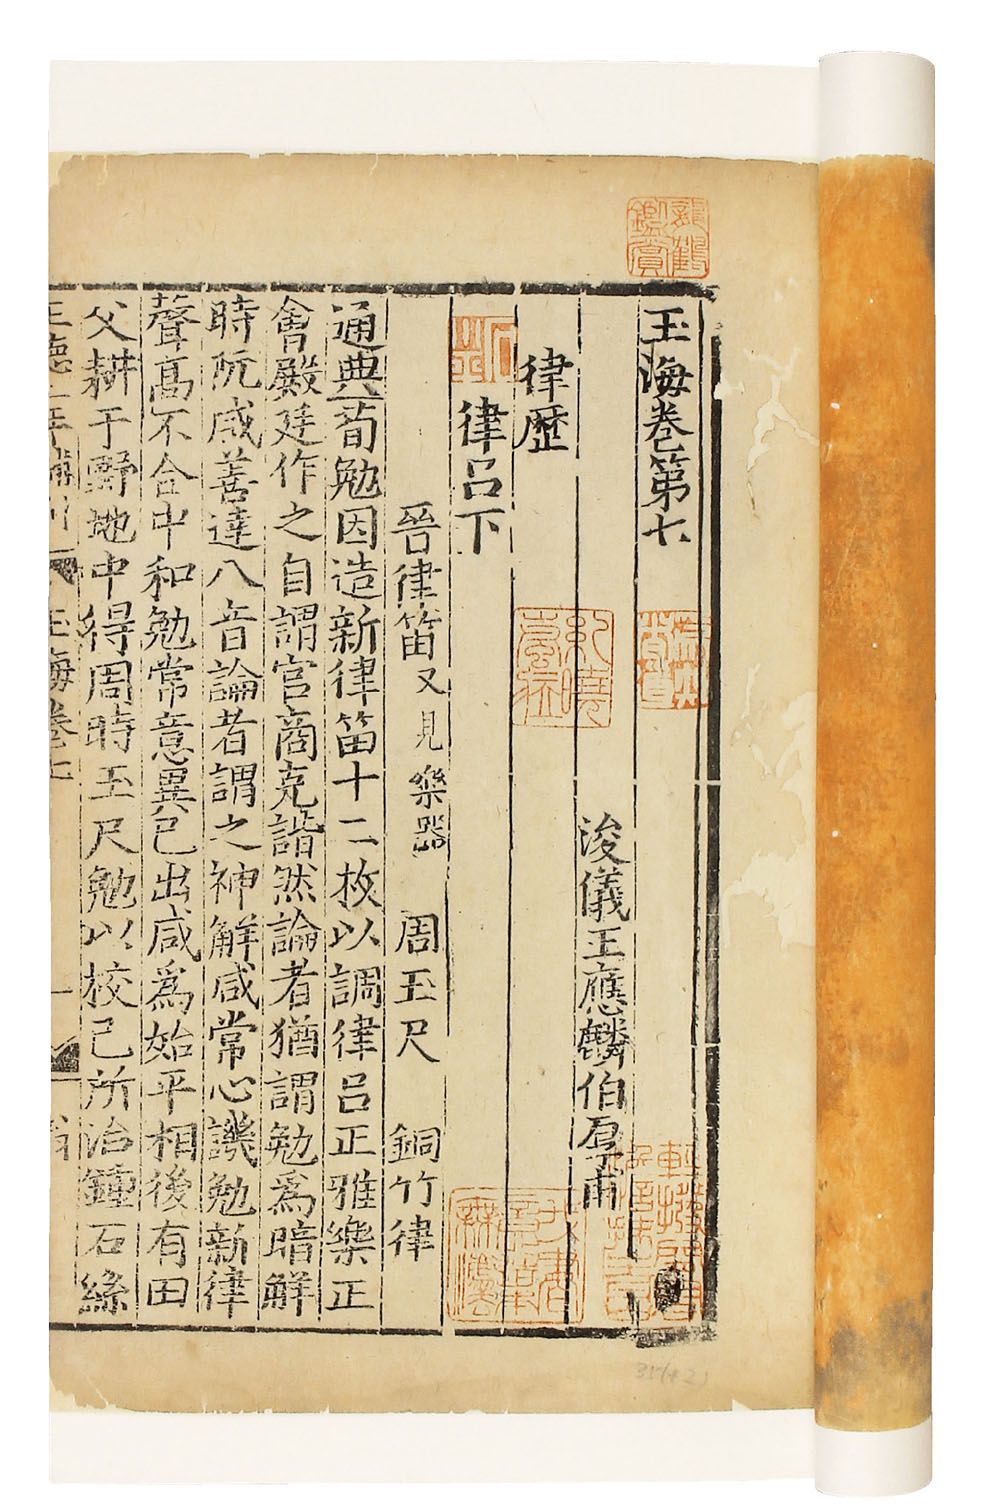 玉海卷第七
浚儀王應麟伯厚甫
律歷
律呂下
晉律笛又見樂器 周玉尺 銅竹律
通典荀勉因造新律笛十二枚以調律呂正雅樂正
會殿廷作之自謂宮商克諧然論者猶謂勉爲暗解
時阮咸善達八音論者謂之神解咸常心譏勉新律
聲高不合中和勉常意異已出咸爲始平相後有田
父耕于野地中得周時玉尺勉以校已所治鍾石絲
玉海卷七
龍鶴鑑賞